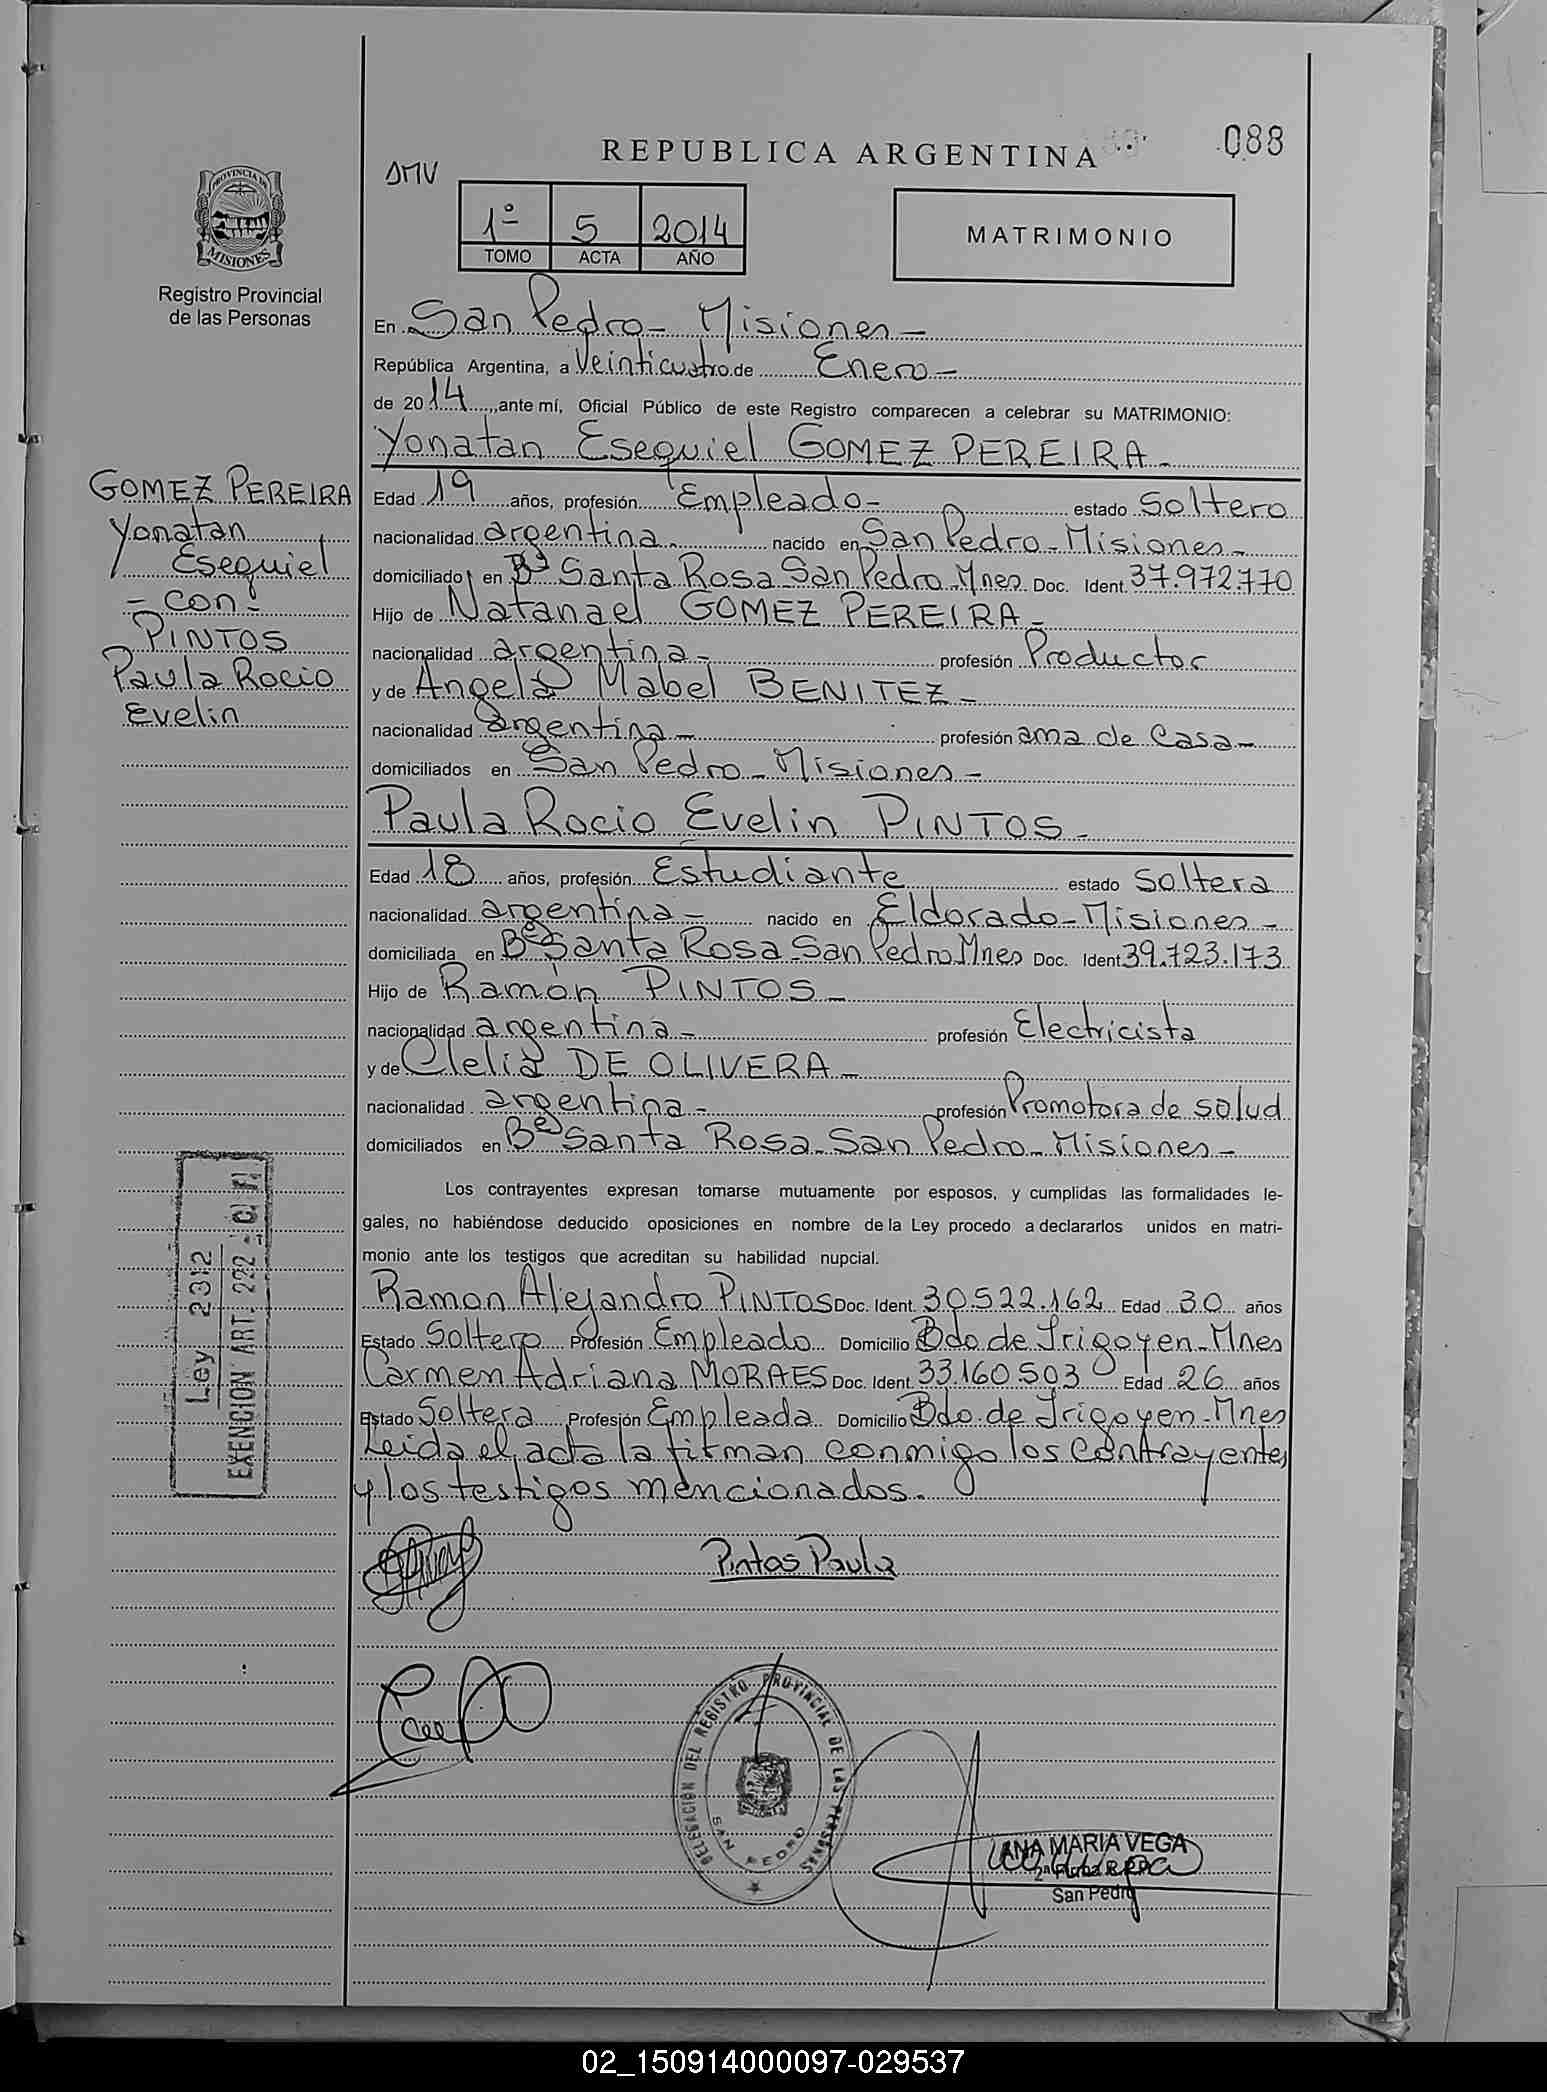 REPUBLICA ARGENTINA
088
DMV
1º 5 2014
TOMO ACTA AÑO
MATRIMONIO
PROVINCIA DE
MISIONES
Registro Provincial
de las Personas
GOMEZ PEREIRA
Yonatan
Esequiel
- con -
PINTOS
Paula Rocio
Evelin
Ley 2312
EXENCION ART. 222
En San Pedro - Misiones -
República Argentina, a Veinticuatro de Enero -
de 2014, ante mí, Oficial Público de este Registro comparecen a celebrar su MATRIMONIO:
Yonatan Esequiel GOMEZ PEREIRA -
Edad 19 años, profesión Empleado - estado Soltero
nacionalidad argentina - nacido en San Pedro - Misiones -
domiciliado en Bº Santa Rosa San Pedro Mnes Doc. Ident. 37.972.770
Hijo de Natanael GOMEZ PEREIRA -
nacionalidad argentina - profesión Productor
y de Angela Mabel BENITEZ -
nacionalidad argentina - profesión ama de casa -
domiciliados en San Pedro - Misiones -
Paula Rocio Evelin PINTOS -
Edad 18 años, profesión Estudiante estado Soltera
nacionalidad argentina - nacido en Eldorado - Misiones -
domiciliada en Bº Santa Rosa - San Pedro Mnes Doc. Ident 39.723.173
Hijo de Ramón PINTOS -
nacionalidad argentina - profesión Electricista
y de Clelia DE OLIVERA -
nacionalidad argentina - profesión Promotora de salud
domiciliados en Bº Santa Rosa - San Pedro - Misiones -
Los contrayentes expresan tomarse mutuamente por esposos, y cumplidas las formalidades le-
gales, no habiéndose deducido oposiciones en nombre de la Ley procedo a declararlos unidos en matri-
monio ante los testigos que acreditan su habilidad nupcial.
Ramon Alejandro PINTOS Doc. Ident. 30.522.162 Edad 30 años
Estado Soltero Profesión Empleado Domicilio Bdo de Irigoyen - Mnes
Carmen Adriana MORAES Doc. Ident. 33.160.503 Edad 26 años
Estado Soltera Profesión Empleada Domicilio Bdo. de Irigoyen - Mnes
Leida el acta la firman conmigo los contrayentes
y los testigos mencionados.
Pintos Paula
DELEGACION DEL REGISTRO PROVINCIAL DE LAS PERSONAS
SAN PEDRO
ANA MARIA VEGA
San Pedro
02_150914000097-029537